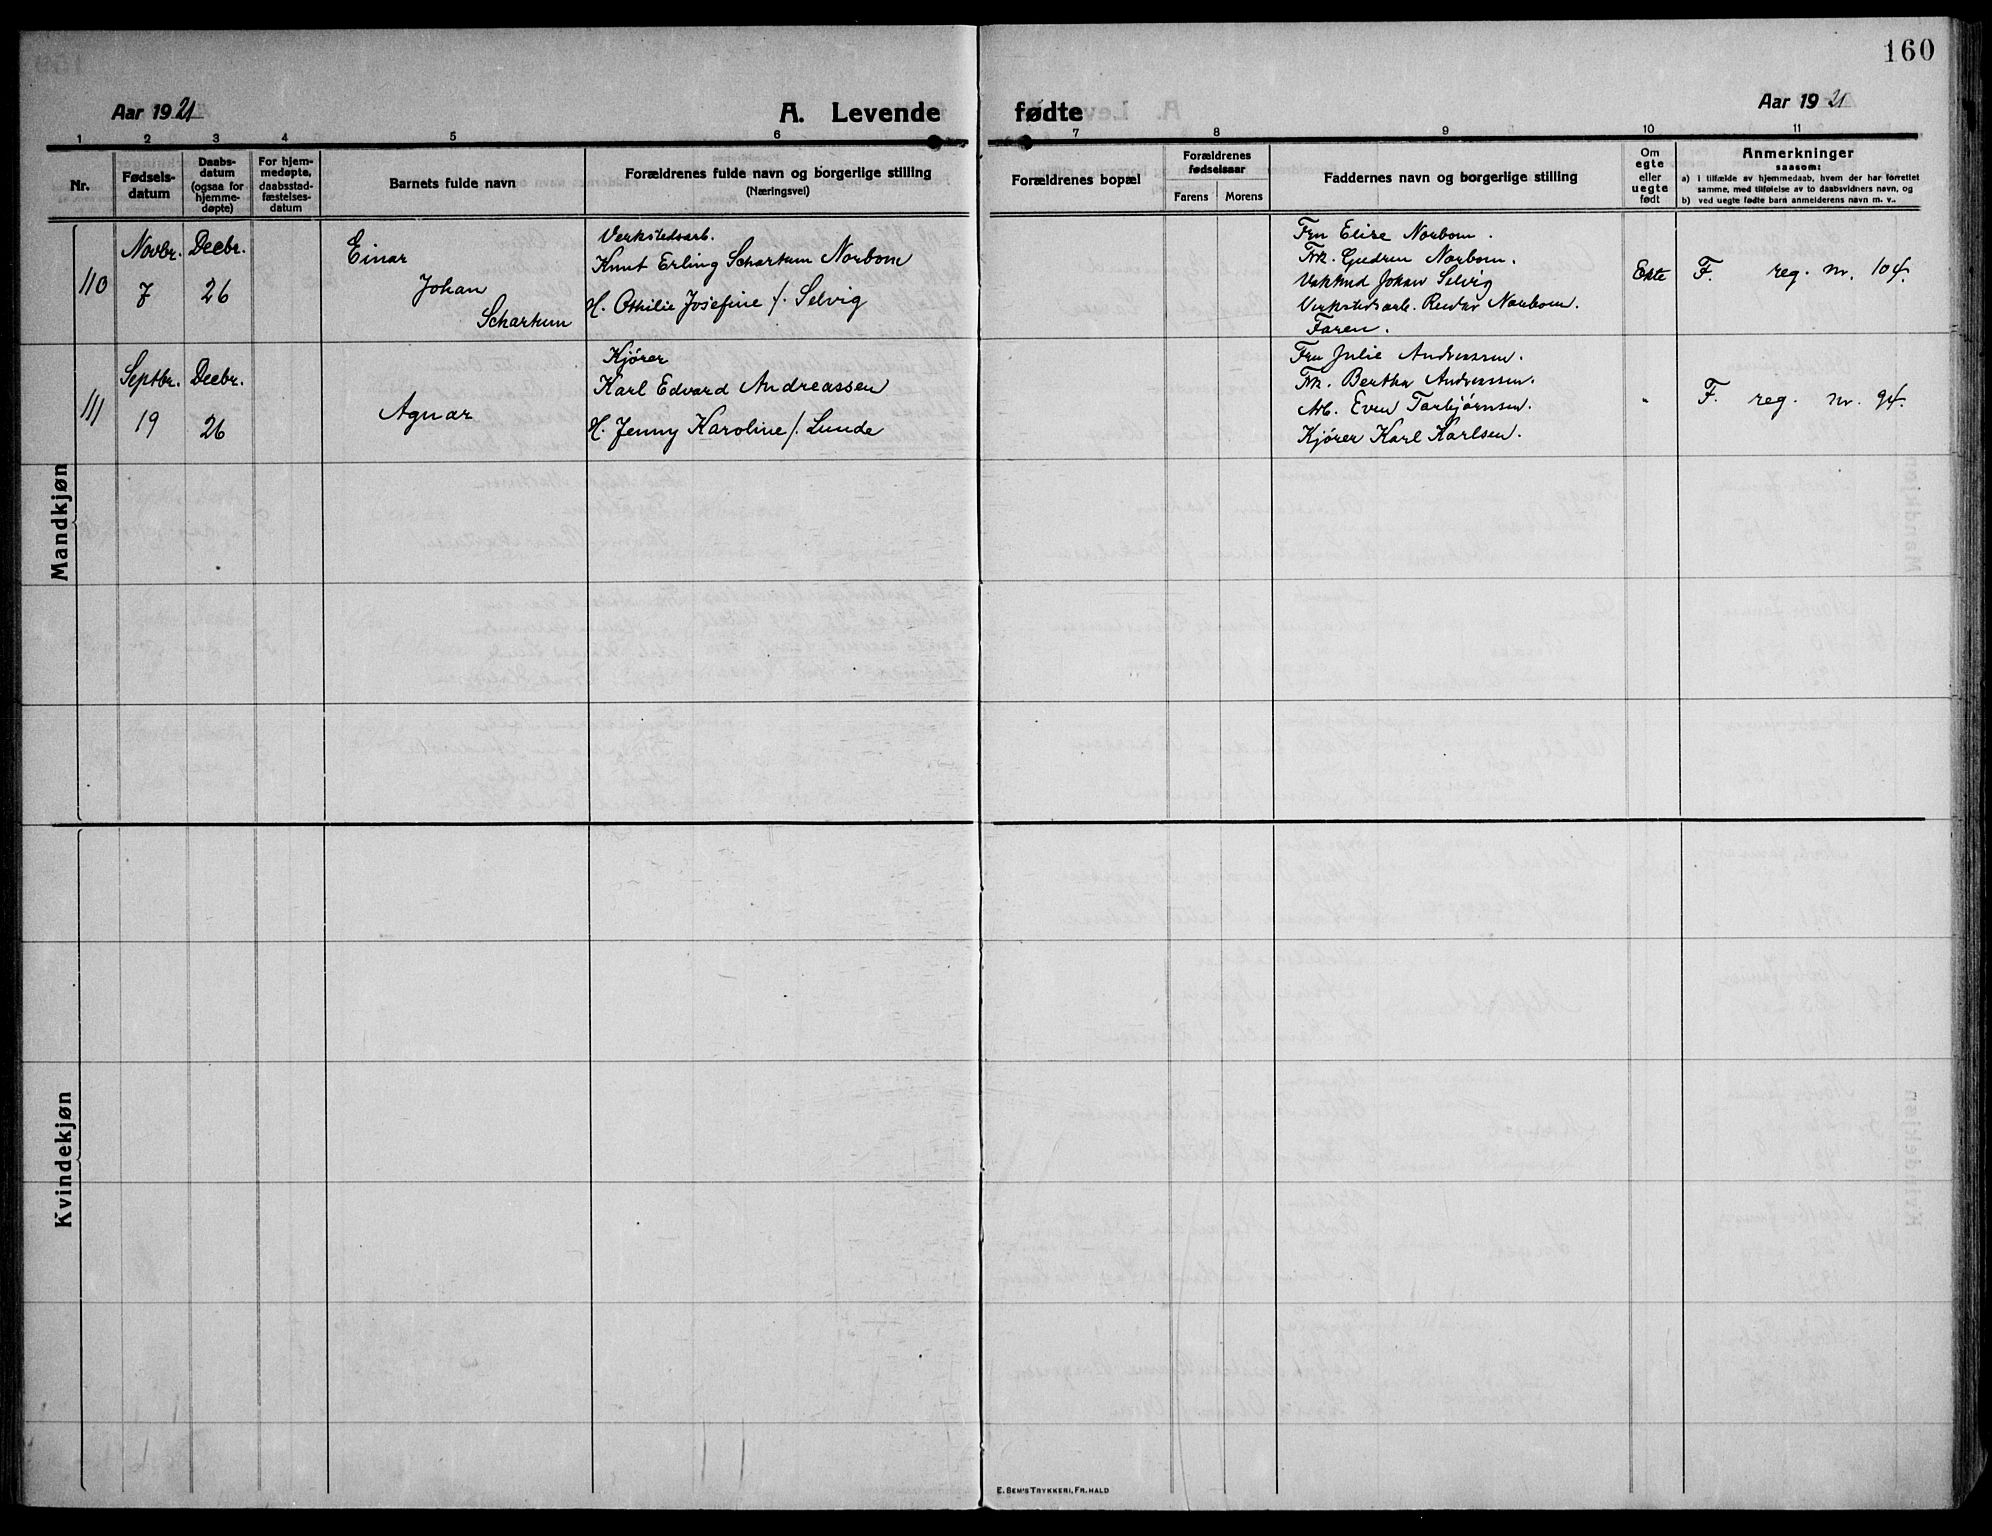 160
Aar 1921
A. Levende
fødte
Aar 1921
1 2 3 4 5 6 7 8 9 10 11
Nr.
Fødsels-
datum
Daabs-
datum
(ogsaa for
hjemme-
døpte)
For hjem-
medøpte,
daabsstad-
fæstelses-
datum
Barnets fulde navn
Forældrenes fulde navn og borgerlige stilling
(Næringsvei)
Forældrenes bopæl
Forældrenes
fødselsaar
Farens Morens
Faddernes navn og borgerlige stilling
Om
egte
eller
uegte
født
Anmerkninger
saasom:
a) i tilfælde av hjemmedaab, hvem der har forrettet
samme, med tilføielse av to daabsvidners navn, og
b) ved uegte fødte barn anmelderens navn m. v..
Mandkjøn
110
Novbr.
7
Decbr.
26
Einar
Johan
Schartum
Verkstedsarb.
Knut Erling Schartum Norbom
H. Othilie Josefine f. Selvig
Fru Elise Norbom.
Frk. Gudrun Norbom.
Johan Selvig
Verkstedsarb. Reidar Norbom.
Faren.
Ekte
F. reg. nr. 104.
111
Septbr.
19
Decbr.
26
Agnar
Kjører
Karl Edvard Andreassen
H. Jenny Karoline f. Lunde
Fru Julie Andreassen.
Frk. Bertha Andreassen.
Arb. Even Torbjørnsen.
Kjører Karl Karlsen.
"
F. reg. nr. 94.
Kvindekjøn
E. SEM'S TRYKKERI, FR.HALD